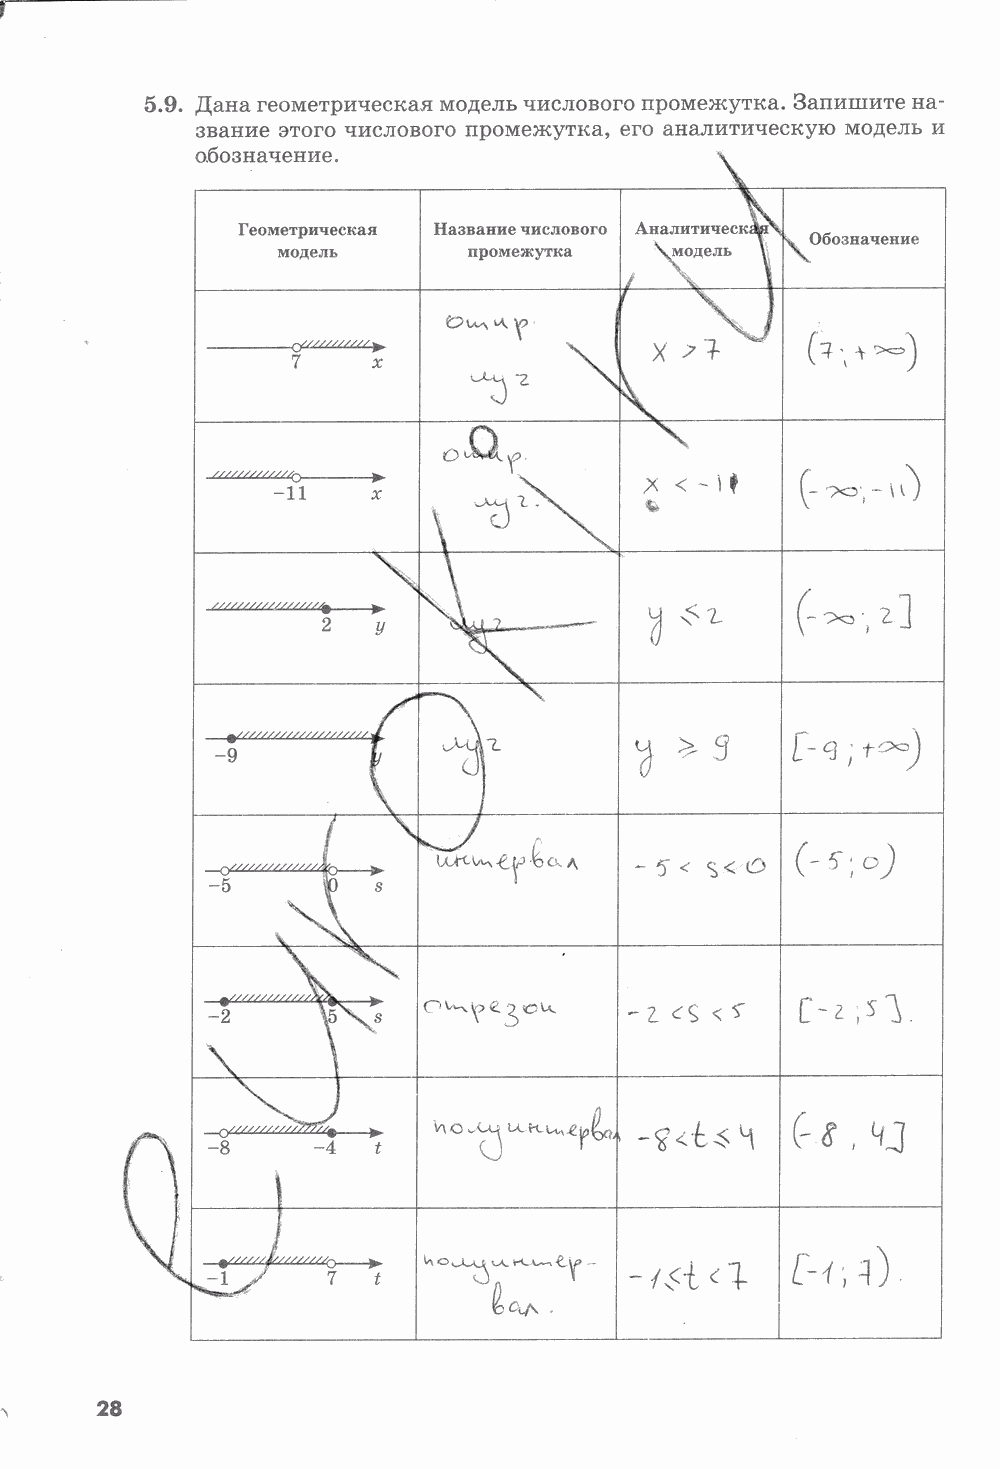 5.9. Дана геометрическая модель числового промежутка. Запишите на-
звание этого числового промежутка, его аналитическую модель и
обозначение.
Геометрическая модель
Название числового промежутка
Аналитическая модель
Обозначение
7 x
откр. луч
x > 7
(7; +∞)
−11 x
откр. луч.
x < -11
(-∞; -11)
2 y
луч
y ≤ 2
(-∞; 2]
−9 y
луч
y ≥ 9
[-9; +∞)
−5 0 s
интервал
-5 < s < 0
(-5; 0)
−2 5 s
отрезок
-2 < s < 5
[-2; 5].
−8 −4 t
полуинтервал
-8 < t ≤ 4
(-8, 4]
−1 7 t
полуинтер-
вал.
-1 ≤ t < 7
[-1; 7).
28